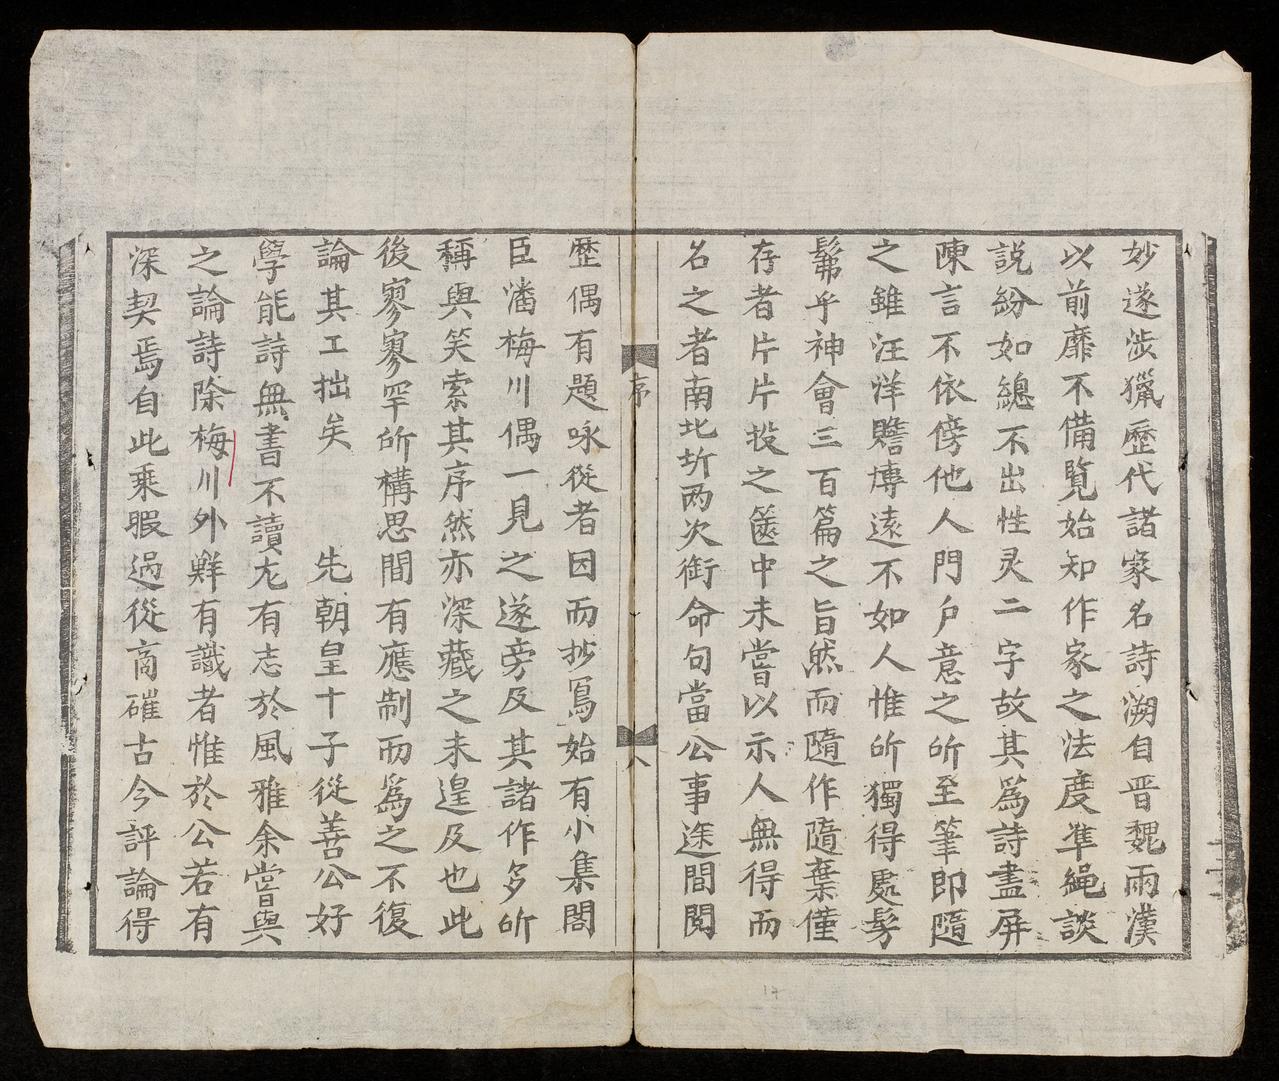 妙遂涉獵歷代諸家名詩溯自晋魏兩漢
以前靡不備覽始知作家之法度凖繩談
説紛如總不出性灵二字故其爲詩盡屏
陳言不依傍他人門户意之所至筆即隨
之雖汪洋贍博遠不如人惟所獨得處髣
髴乎神會三百篇之旨然而隨作隨棄僅
存者片片投之篋中未嘗以示人無得而
名之者南北圻两次銜命句當公事途間閱
序
八
歷偶有題咏從者因而抄寫始有小集閣
臣潘梅川偶一見之遂旁及其諸作多所
稱與笑索其序然亦深藏之未遑及也此
後寥寥罕所構思間有應制而爲之不復
論其工拙矣 先朝皇十子從善公好
學能詩無書不讀尤有志於風雅余嘗與
之論詩除梅川外鮮有識者惟於公若有
深契焉自此乘暇過從商磪古今評論得